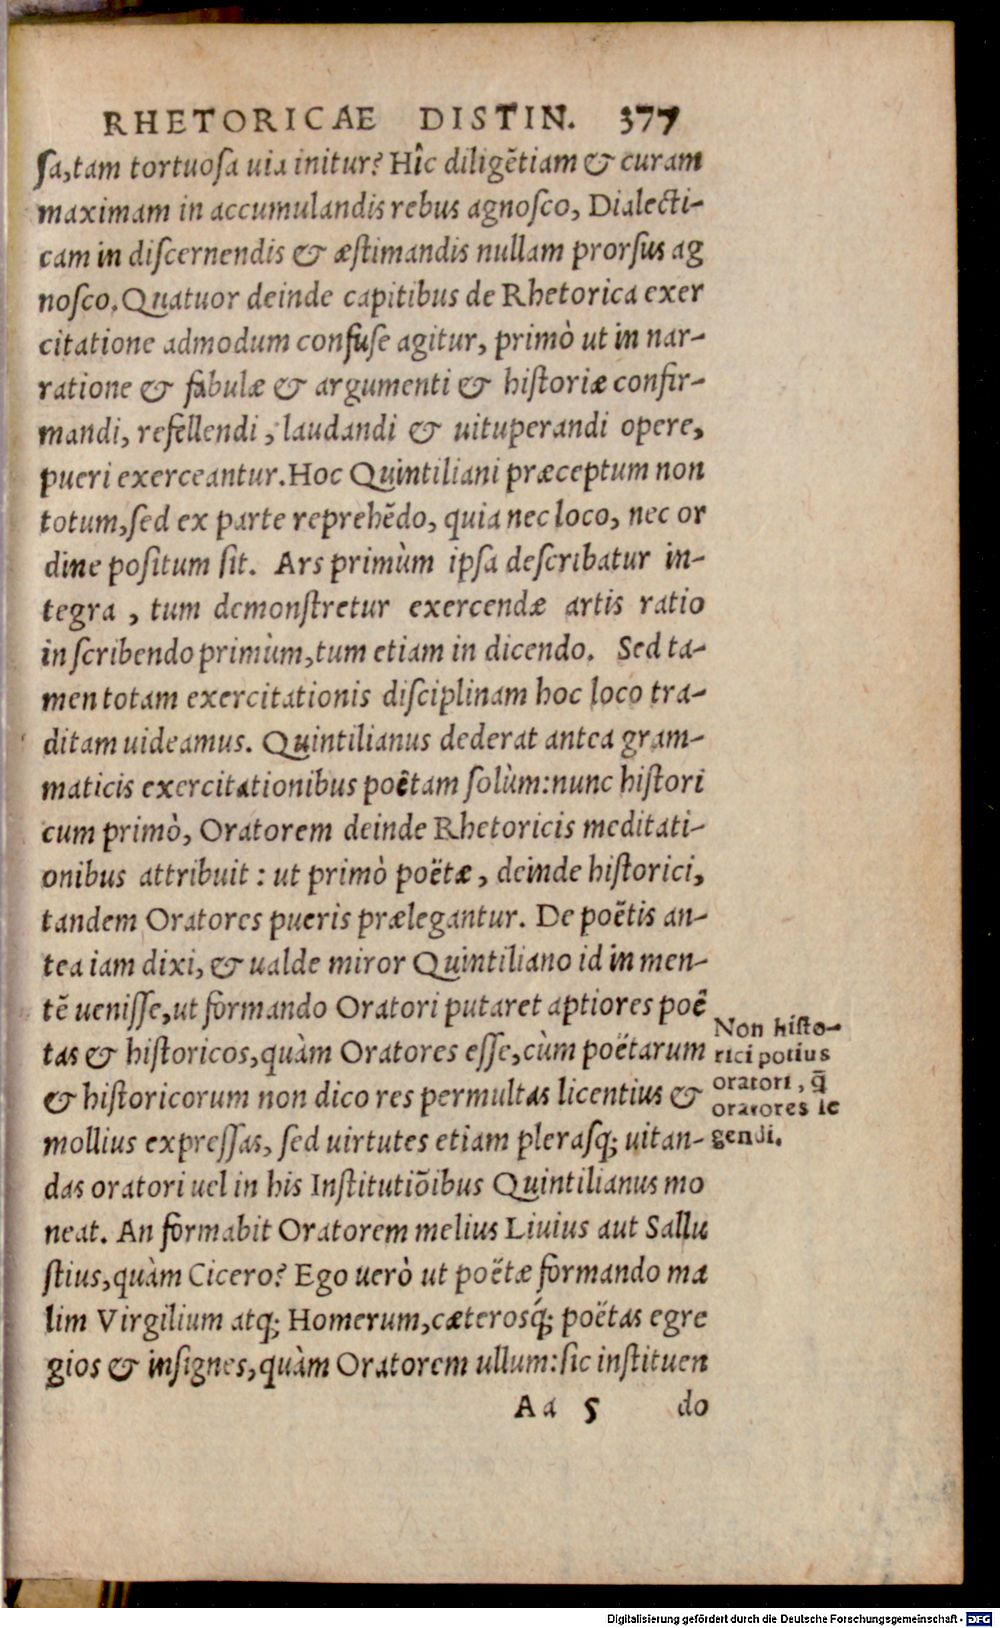 RHETORICAE DISTIN. 377
ſa, tam tortuoſa uia initur? Hîc diligẽtiam & curam
maximam in accumulandis rebus agnoſco, Dialecti-
cam in diſcernendis & æſtimandis nullam prorſus ag
noſco. Quatuor deinde capitibus de Rhetorica exer
citatione admodum confuſe agitur, primò ut in nar-
ratione & fabulæ & argumenti & hiſtoriæ confir-
mandi, refellendi, laudandi & uituperandi opere,
pueri exerceantur. Hoc Quintiliani præceptum non
totum, ſed ex parte reprehẽdo, quia nec loco, nec or
dine poſitum ſit. Ars primùm ipſa deſcribatur in-
tegra, tum demonſtretur exercendæ artis ratio
in ſcribendo primùm, tum etiam in dicendo. Sed ta-
men totam exercitationis diſciplinam hoc loco tra-
ditam uideamus. Quintilianus dederat antea gram-
maticis exercitationibus poëtam ſolùm: nunc hiſtori
cum primò, Oratorem deinde Rhetoricis meditati-
onibus attribuit: ut primò poëtæ, deinde hiſtorici,
tandem Oratores pueris prælegantur. De poëtis an-
tea iam dixi, & ualde miror Quintiliano id in men-
tẽ ueniſſe, ut formando Oratori putaret aptiores poë
tas & hiſtoricos, quàm Oratores eſſe, cùm poëtarum
& hiſtoricorum non dico res permultas licentius &
mollius expreſſas, ſed uirtutes etiam pleraſq; uitan-
das oratori uel in his Inſtitutiõibus Quintilianus mo
neat. An formabit Oratorem melius Liuius aut Sallu
ſtius, quàm Cicero? Ego uerò ut poëtæ formando ma
lim Virgilium atq; Homerum, cæteroſq́; poëtas egre
gios & inſignes, quàm Oratorem ullum: ſic inſtituen
Aa 5 do
Non hiſto-
rici potius
oratori, q̃
oratores le
gendi.
Digitalisierung gefördert durch die Deutsche Forschungsgemeinschaft - DFG